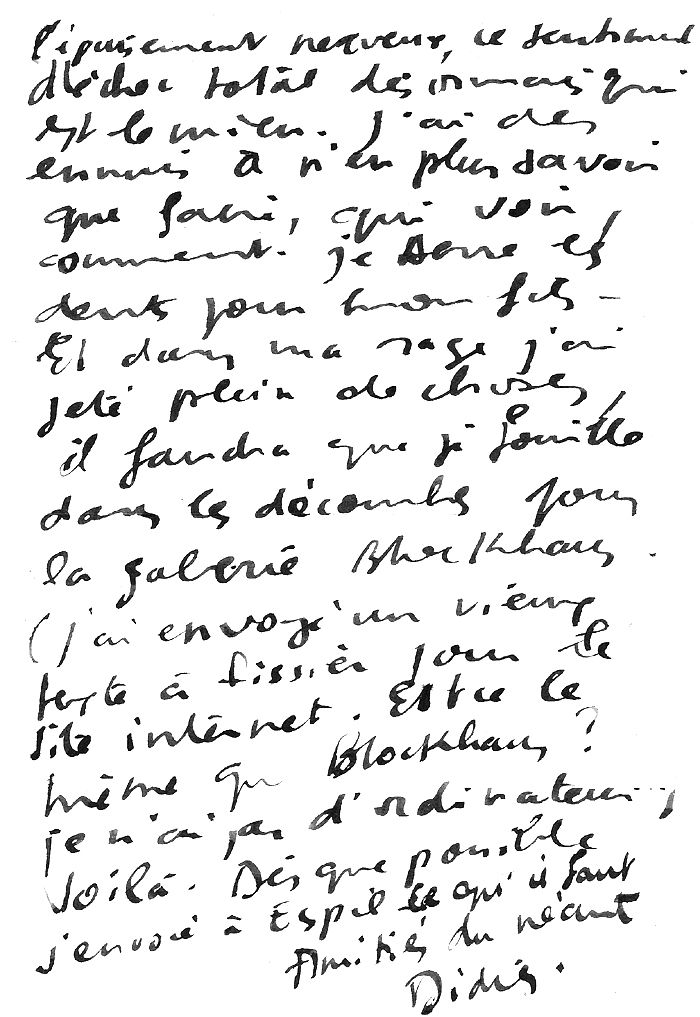 l'épuisement nerveux, ce sentiment
d'échec total désormais qui
est le mien. J'ai des
ennuis à n'en plus savoir
que faire, qui voir,
comment. je serre les
dents pour mon fils -
Et dans ma rage j'ai
jeté plein de choses,
il faudra que je fouille
dans les décombres pour
la galerie Blockhaus.
(j'ai envoyé un vieux
texte à Tissier pour le
site internet. Est ce le
même que Blockhaus ?
je n'ai pas d'ordinateur)
Voilà. Dès que possible
j'envoie à Espil ce qu'il faut
Amitiés du néant
Didier.